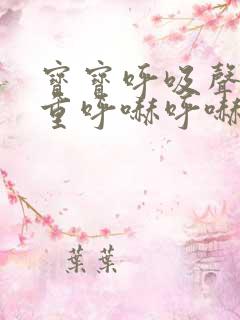 寶寶呼吸聲
重呼嚇呼嚇
葉葉